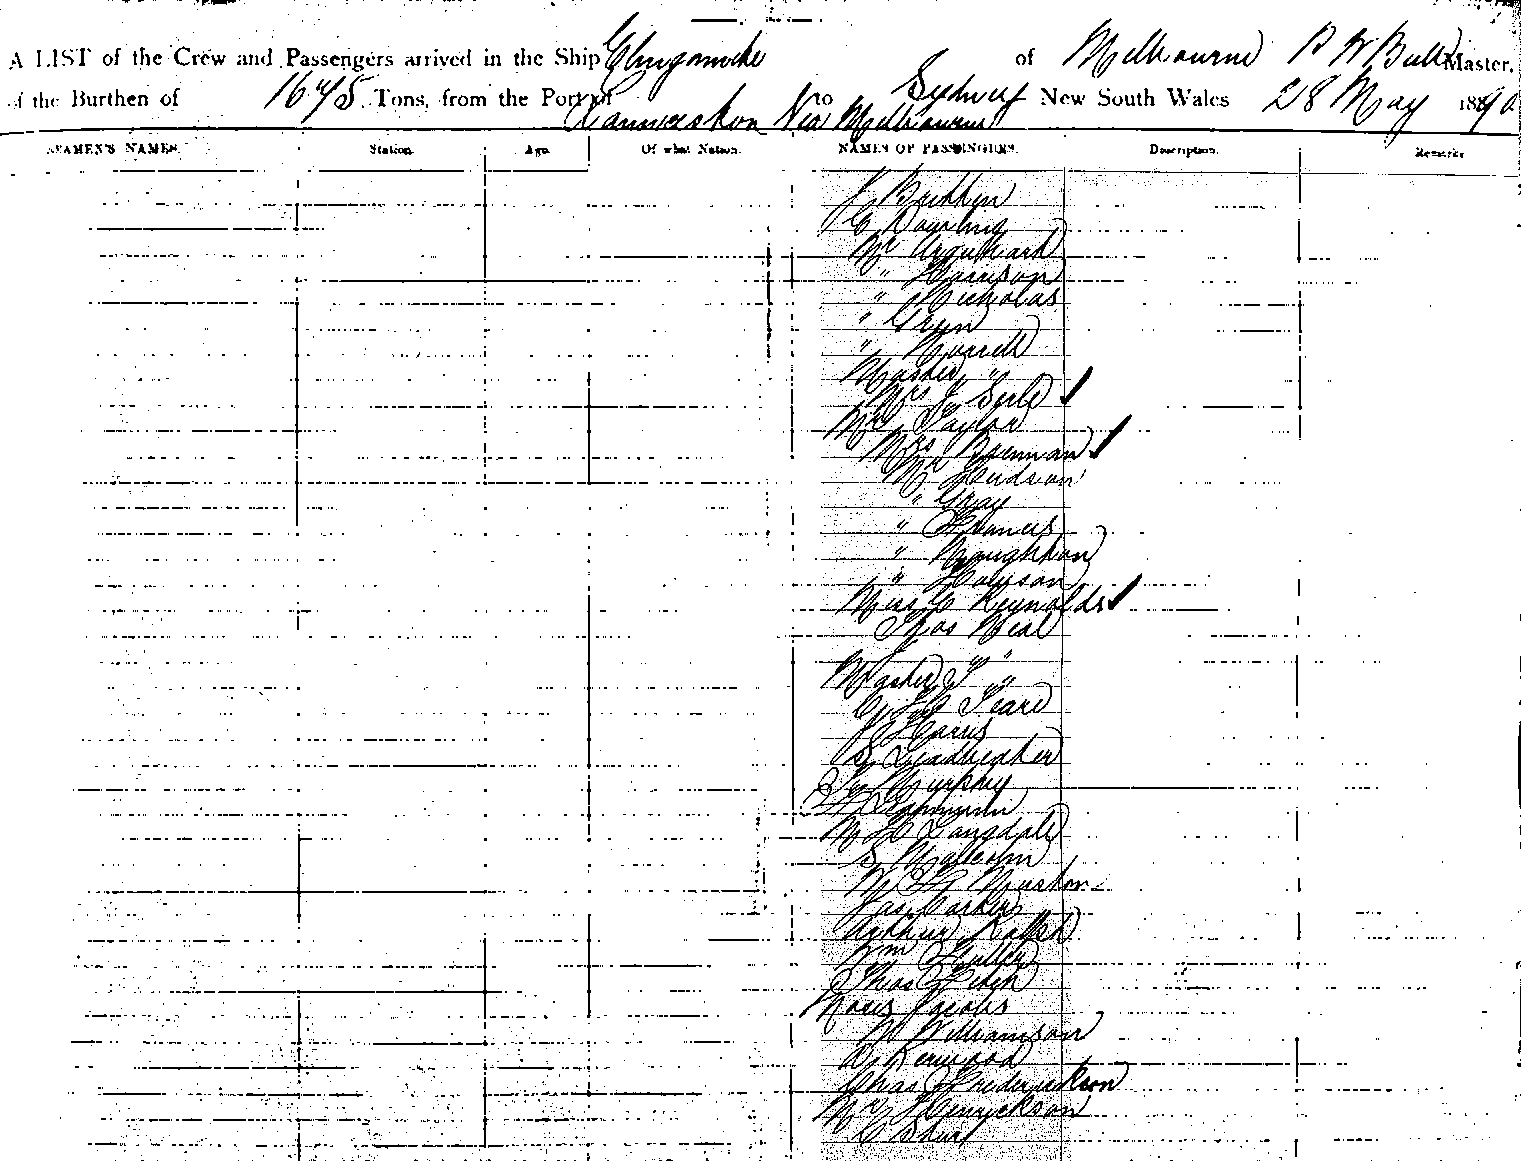 A LIST of the Crew and Passengers arrived in the Ship Elingamite of Melbourne P W Bull Master,
of the Burthen of 1675 Tons, from the Port of Launceston Via Melbourne to Sydney New South Wales 28 May 1890
SEAMEN'S NAMES. Station. Age. Of what Nation. NAMES OF PASSENGERS. Description. Remarks
J
C Dowling
Mr Urquhart
" Harrison
" Nicholas
" Green
" Murrell
Master "
Mrs J Serle
Mr Taylor
Mrs Brennan
Mr Hudson
" Gray
" Francis
" Naughton
" Howson
Miss C Reynolds
Thos Neal
J " "
Master T "
C Teare
J Harris
S Leadbeater
Murphy
M H Langdale
S Malcolm
W H Maston
Jas Parker
Arthur Ralph
Wm Fuller
Thos Fitch
Moses Jacobs
M Williamson
A Kenwood
Chas Frederickson
Mr Henrickson
C